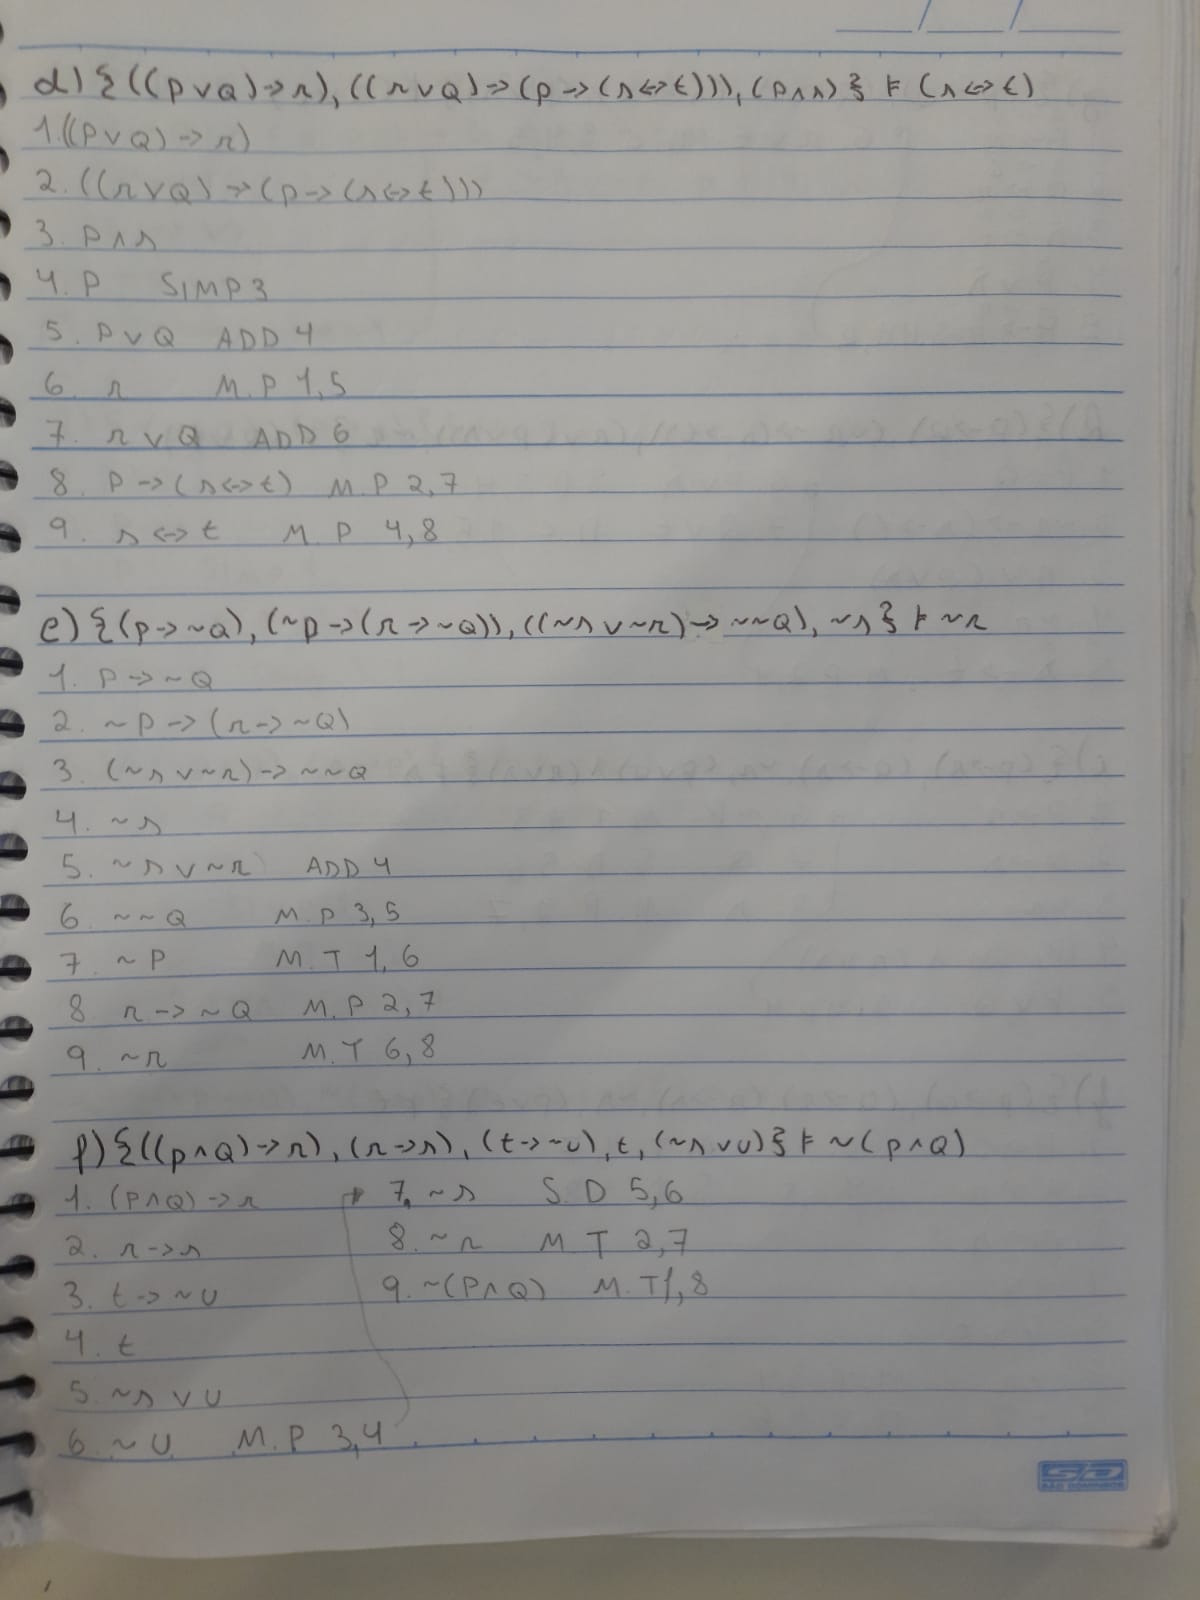 d) {((p∨Q)→r), ((r∨Q)→(p→(s↔t))), (p∧s)} ⊧ (s↔t)
1.((P∨Q)→r)
2. ((r∨Q)→(p→(s↔t)))
3. P∧s
4. P SIMP 3
5. P∨Q ADD 4
6. r M.P 1,5
7. r∨Q ADD 6
8. P→(s↔t) M.P 2,7
9. s↔t M.P 4,8
e) {(p→~Q), (~p→(r→~Q)), ((~s∨~r)→~~Q), ~s} ⊧ ~r
1. P→~Q
2. ~P→(r→~Q)
3. (~s∨~r)→~~Q
4. ~s
5. ~s∨~r ADD 4
6. ~~Q M.P 3,5
7. ~P M.T 1,6
8 r→~Q M.P 2,7
9. ~r M.T 6,8
f) {((p∧Q)→r), (r→s), (t→~U), t, (~s∨U)} ⊧ ~(p∧Q)
1. (P∧Q)→r
2. r→s
3. t→~U
4. t
5. ~s∨U
6. ~U M.P 3,4
7. ~s S.D 5,6
8. ~r M.T 2,7
9. ~(P∧Q) M.T 1,8
SD
SÃO DOMINGOS